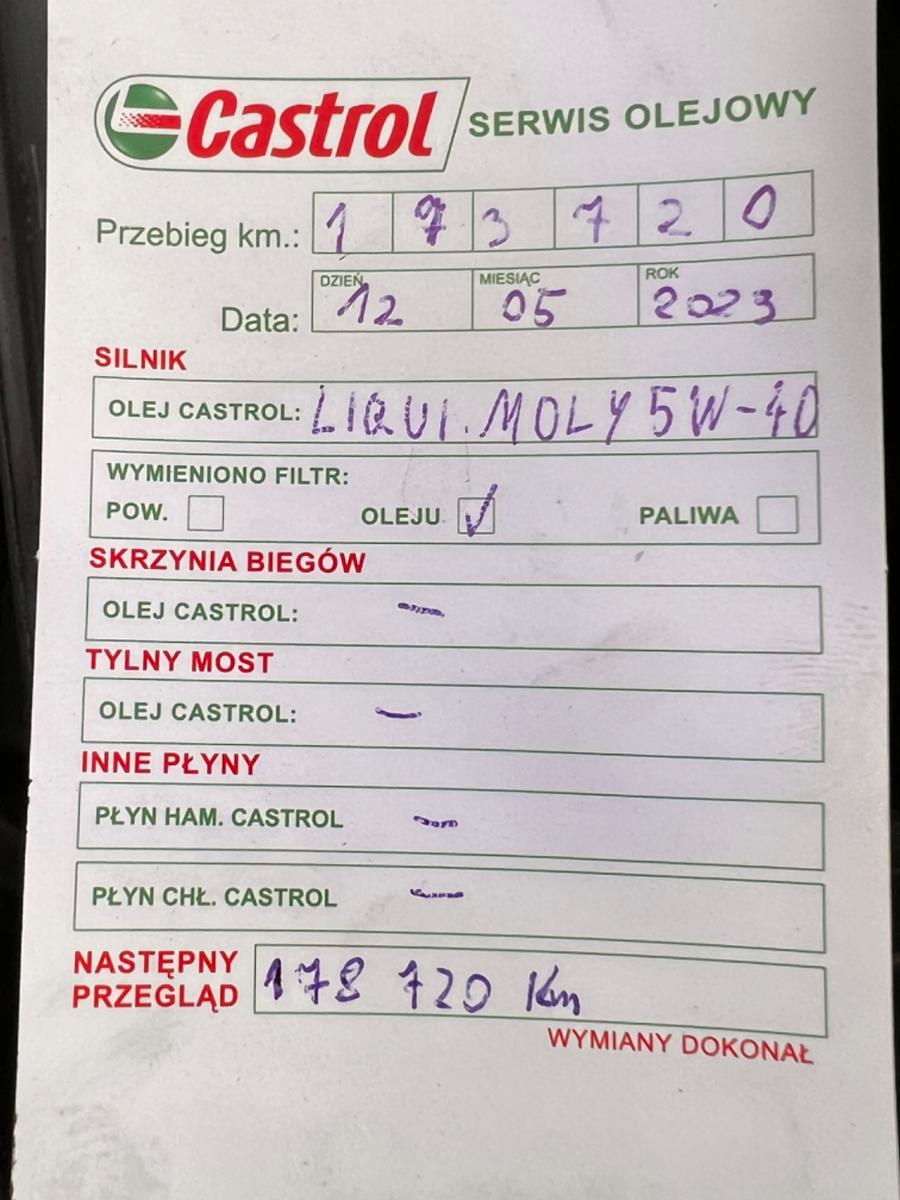 Castrol SERWIS OLEJOWY
Przebieg km.: 1 7 3 7 2 0
DZIEŃ MIESIĄC ROK
Data: 12 05 2023
SILNIK
OLEJ CASTROL: LIQUI. MOLY 5W-40
WYMIENIONO FILTR:
POW. OLEJU ✓ PALIWA
SKRZYNIA BIEGÓW
OLEJ CASTROL: —
TYLNY MOST
OLEJ CASTROL: —
INNE PŁYNY
PŁYN HAM. CASTROL —
PŁYN CHŁ. CASTROL —
NASTĘPNY
PRZEGLĄD 178 720 Km
WYMIANY DOKONAŁ